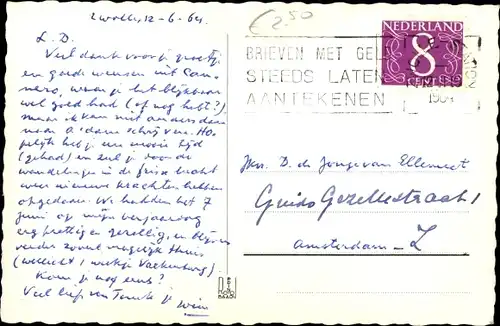 Zwolle, 12-6-64.
L. D.
Veel dank voor je groetjes
en goede wensen uit
, waar je het blijkbaar
wel goed had (of nog hebt?)
maar ik ken niet anders dan
naar A'dam schrijven. Ho-
pelijk heb je een mooie tijd
(gehad) en zul je voor de
in de frisse lucht
weer nieuwe krachten hebben
opgedaan. We hadden het 7
juni op mijn verjaardag
erg prettig en gezellig, en blijven
verder zoveel mogelijk thuis
(wellicht 1 weekje Valkenburg).
Kom je nog eens?
Veel liefs van Truus je Wim
€ 2,50
BRIEVEN MET GEL
STEEDS LATEN
AANTEKENEN
1964
NEDERLAND
8
CENT
D. de Jonge van Ellemeet
Guido Gezellestraat 1
Amsterdam - Z